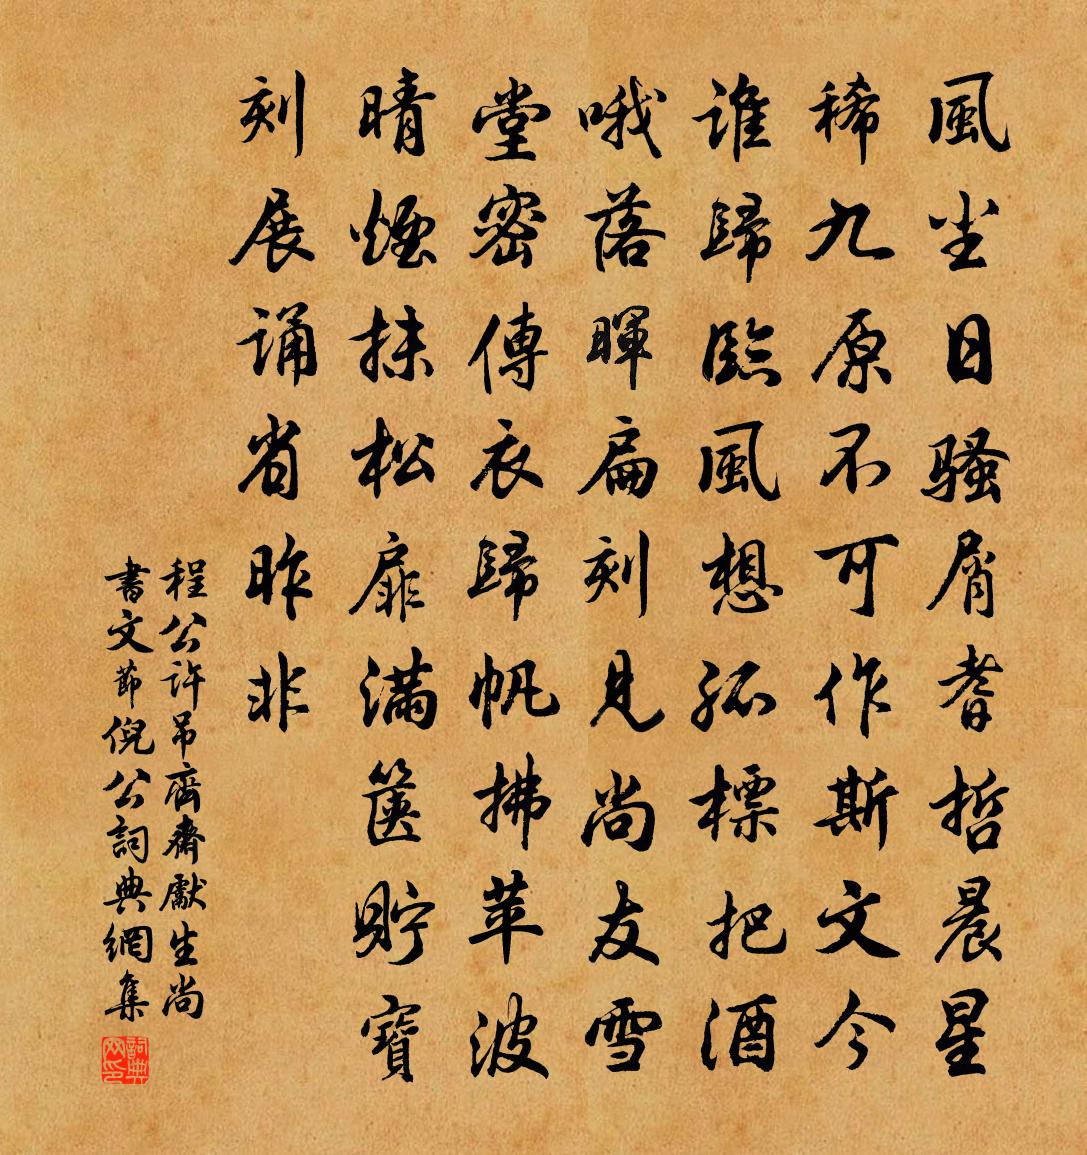 風尘日騷屑耆哲晨星
稀九原不可作斯文今
誰歸臨風想孤標把酒
哦落暉扁刻見尚友雪
堂密傳衣歸帆拂苹波
晴煙抹松扉滿篋貯寶
刻展誦省昨非
程公許吊齊齋獻生尚
書文節倪公詞典網集
詞典网印